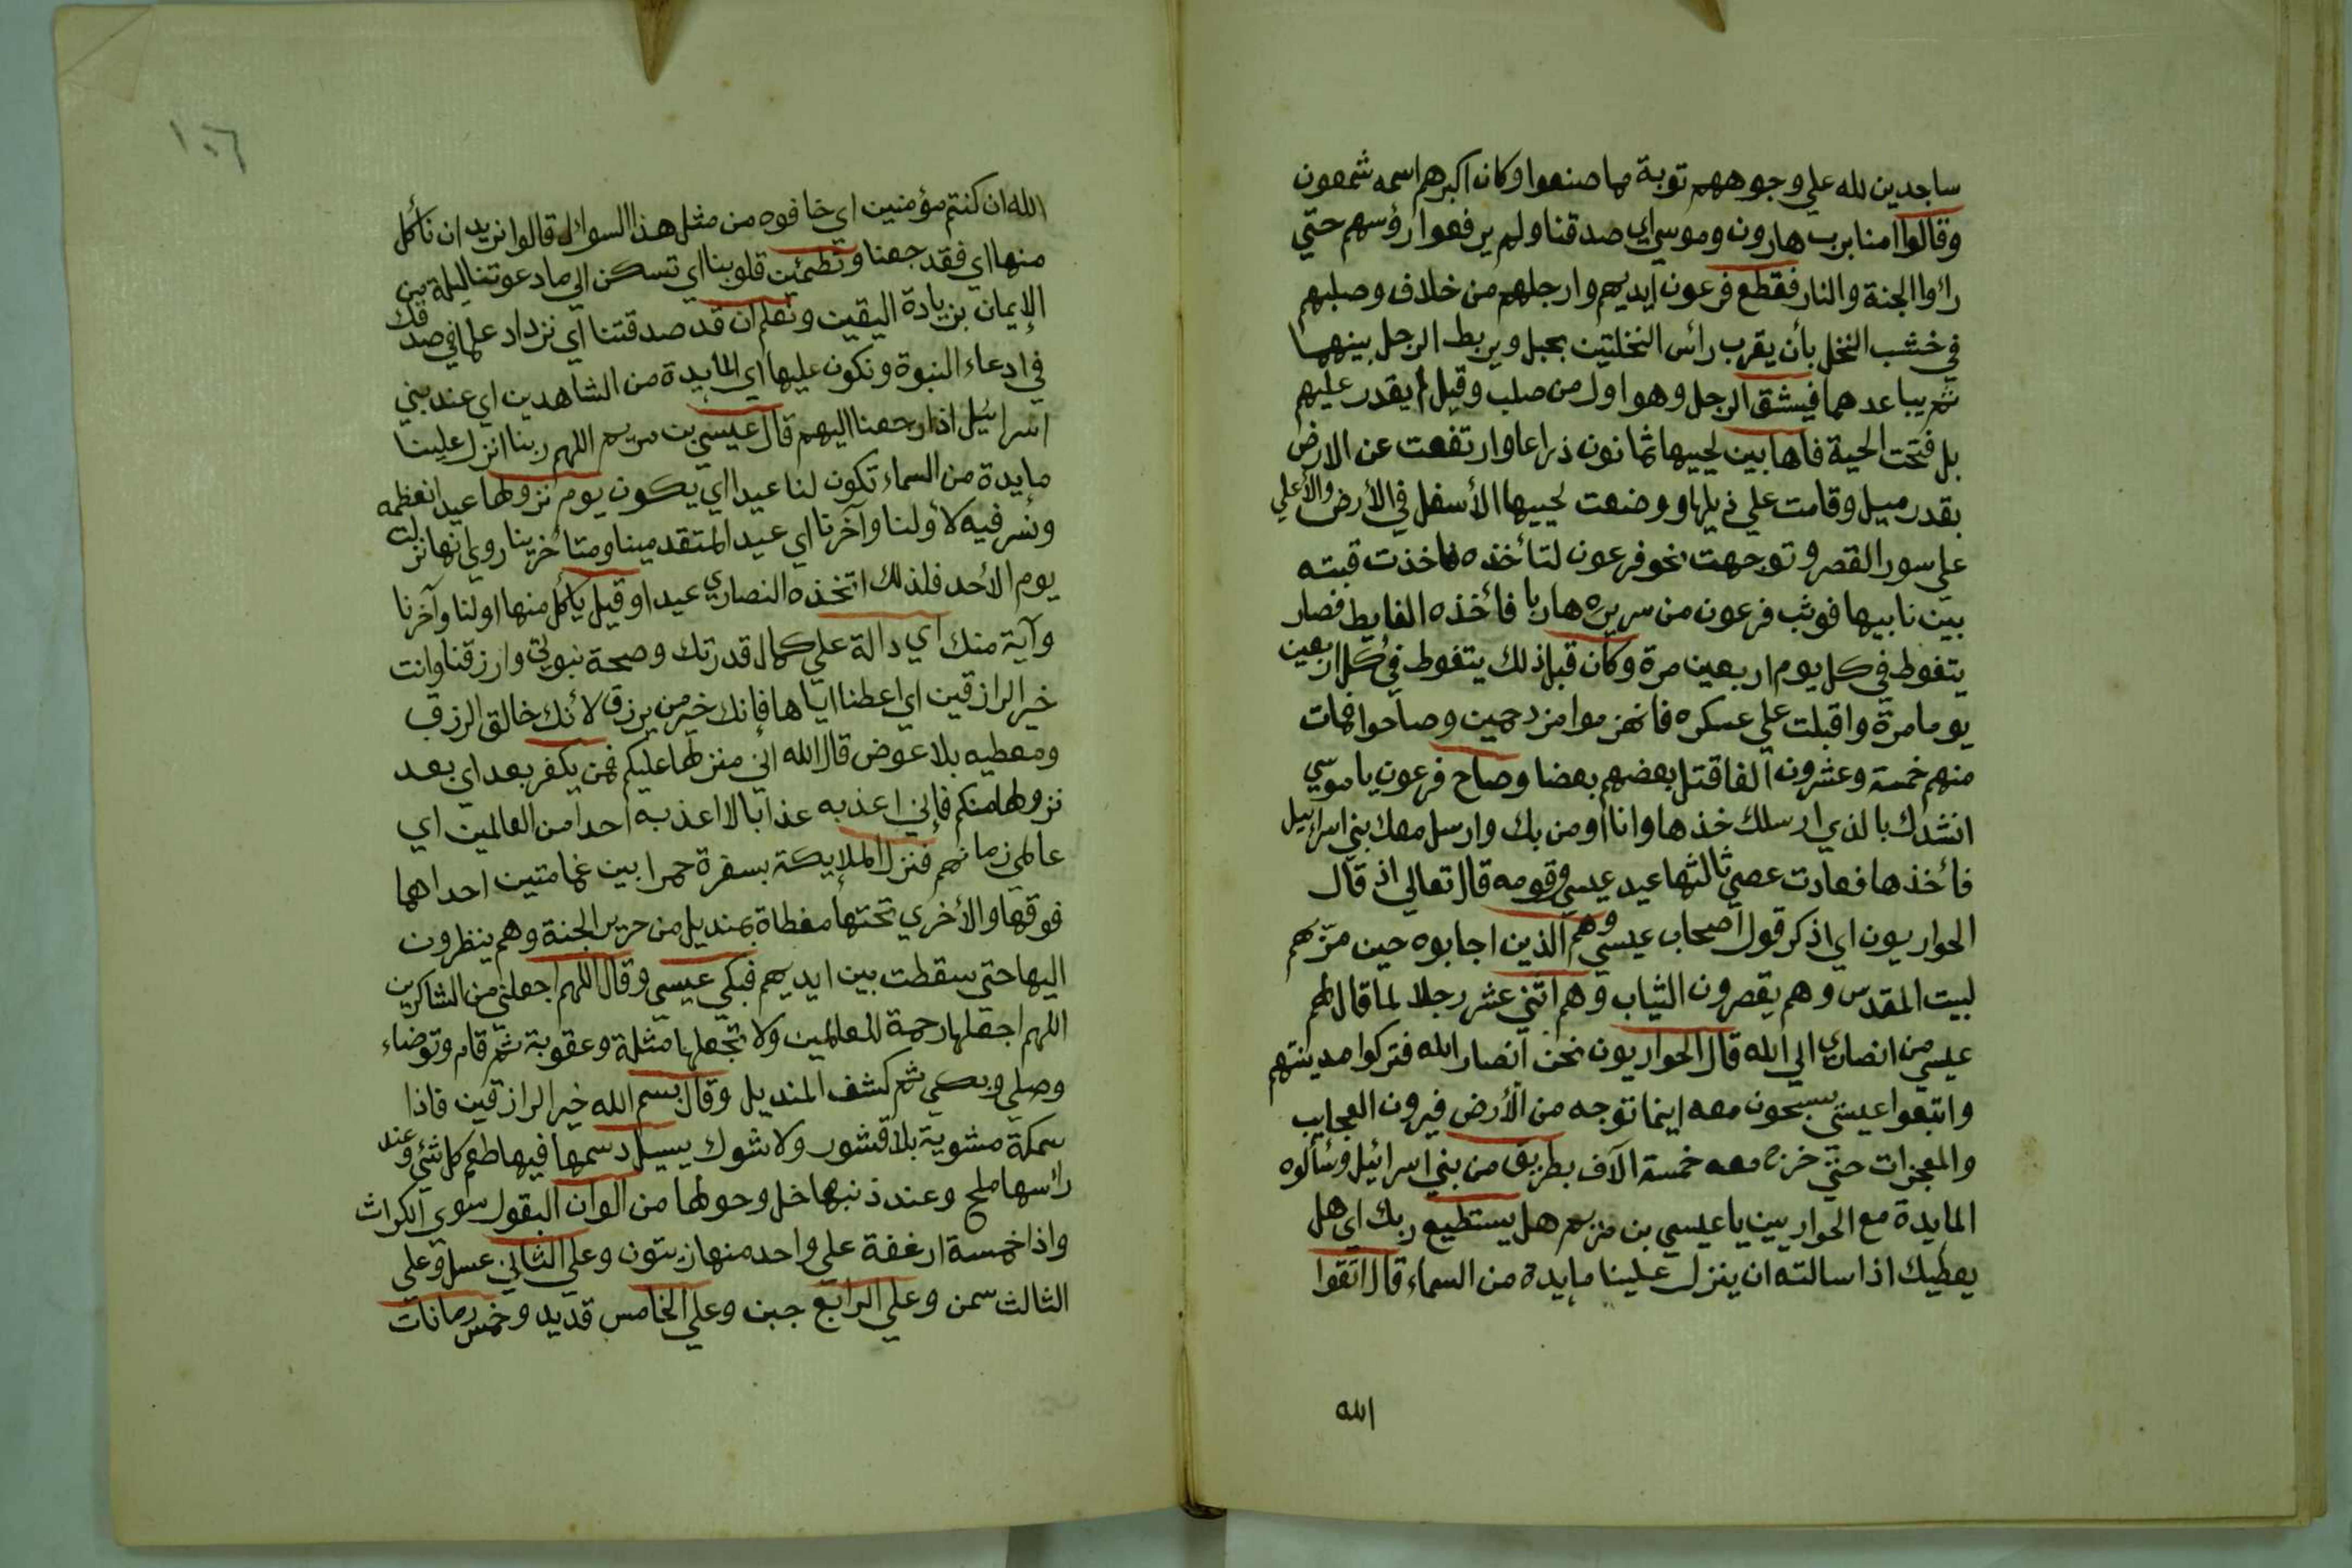 ساجدين لله علي وجوههم توبة مما صنعوا وكان اكبرهم اسمه شمعون
وقالوا امنا برب هارون وموسي اي صدقنا ولم يرفعوا رؤسهم حتي
راوا الجنة والنار فقطع فرعون ايديهم وارجلهم من خلاف وصلبهم
في خشب النخل بأن يقرب رأس النخلتين بحبل ويربط الرجل بينهما
ثم يباعدهما فيشق الرجل وهو اول من صلب وقيل لم يقدر عليهم
بل فتحت الحية فاها بين لحييها ثمانون ذراعا وارتفعت عن الارض
بقدر ميل وقامت علي ذيلها ووضعت لحييها الأسفل في الأرض والأعلي
علي سور القصر وتوجهت نحو فرعون لتأخذه فاخذت قبته
بين نابيها فوثب فرعون من سريره هاربا فأخذه الغايط فصار
يتغوط في كل يوم اربعين مرة وكان قبل ذلك يتغوط في كل اربعين
يوما مرة واقبلت علي عسكره فانهزموا مزدحمين وصاحوا فمات
منهم خمسة وعشرون الفا قتل بعضهم بعضا وصاح فرعون يا موسي
انشدك بالذي ارسلك خذها وانا اومن بك وارسل معك بني اسرائيل
فأخذها فعادت عصي ثالثها عيد عيسي وقومه قال تعالي اذ قال
الحواريون اي اذكر قول اصحاب عيسي وهم الذين اجابوه حين مرّ بهم
لبيت المقدس وهم يقصرون الثياب وهم اثني عشر رجلا لما قال لهم
عيسي من انصاري الي الله قال الحواريون نحن انصار الله فتركوا مدينتهم
واتبعوا عيسي يسبحون معه اينما توجه من الأرض فيرون العجايب
والمعجزات حتي خرج معه خمسة الآف بطريق من بني اسرائيل وسألوه
المايدة مع الحواريين يا عيسي بن مريم هل يستطيع ربك اي هل
يعطيك اذا سالته ان ينزل علينا مايدة من السماء قال اتقوا
الله
١٠٦
الله ان كنتم مؤمنين اي خافوه من مثل هذا السوال قالوا نريد ان نأكل
منها اي فقد جعنا وتطمئن قلوبنا اي تسكن الي ما دعوتنا اليه من
الإيمان بزيادة اليقين ونعلم ان قد صدقتنا اي نزداد علما في صدقك
في ادعاء النبوة ونكون عليها اي المايدة من الشاهدين اي عند بني
اسرائيل اذا رجعنا اليهم قال عيسي بن مريم اللهم ربنا انزل علينا
مايدة من السماء تكون لنا عيدا اي يكون يوم نزولها عيدا نعظمه
ونسر فيه لأولنا وآخرنا اي عيد المتقدمينا ومتأخرينا روي انها نزلت
يوم الأحد فلذلك اتخذه النصاري عيدا وقيل يأكل منها اولنا وآخرنا
وآية منك اي دالة علي كمال قدرتك وصحة نبوتي وارزقنا وانت
خير الرازقين اي اعطنا اياها فإنك خير من يرزق لانك خالق الرزق
ومعطيه بلا عوض قال الله اني منزلها عليكم فمن يكفر بعد اي بعد
نزولها منكم فإني اعذبه عذابا لا اعذبه احدا من العالمين اي
عالمي زمانهم فنزل الملايكة بسفرة حمرا بين غمامتين احداهما
فوقها والأخري تحتها مغطاة بمنديل من حرير الجنة وهم ينظرون
اليها حتي سقطت بين ايديهم فبكي عيسي وقال اللهم اجعلني من الشاكرين
اللهم اجعلها رحمة للعالمين ولا تجعلها مثلة وعقوبة ثم قام وتوضاء
وصلي وبكي ثم كشف المنديل وقال بسم الله خير الرازقين فاذا
سمكة مشوية بلا قشور ولا شوك يسيل دسمها فيها طعم كل شئ وعند
راسها ملح وعند ذنبها خل وحولها من الوان البقول سوي الكراث
واذا خمسة ارغفة علي واحد منها زيتون وعلي الثاني عسل وعلي
الثالث سمن وعلي الرابع جبن وعلي الخامس قديد وخمس رمانات